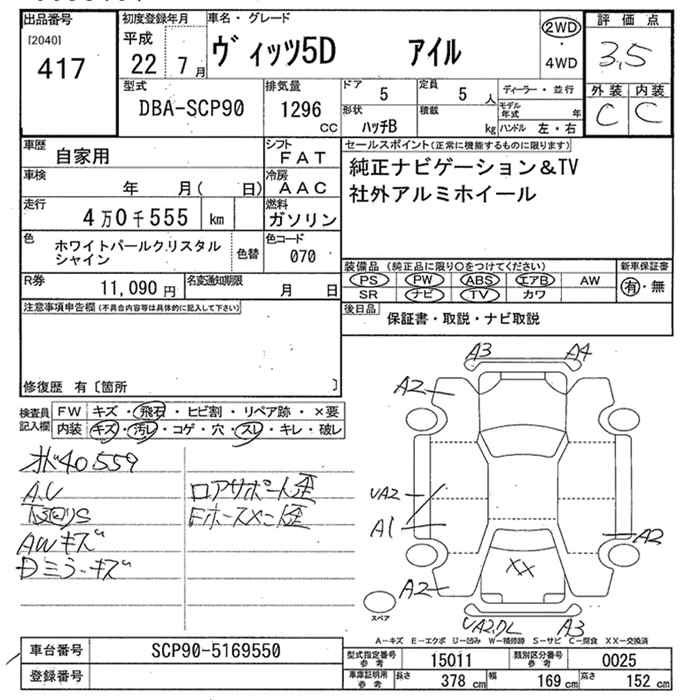 出品番号
[2040]
417
初度登録年月
平成
22 7月
車名・グレード
ヴィッツ5D アイル
2WD
・
4WD
評価点
3.5
外装 内装
C C
型式
DBA-SCP90
排気量
1296
CC
ドア 5
定員 5 人
形状 ハッチB
積載 kg
ディーラー・並行
モデル年式 年
ハンドル 左・右
車歴
自家用
シフト
FAT
車検
年 月( 日)
冷房
AAC
走行
4万0千555 km
燃料
ガソリン
色
ホワイトパールクリスタル
シャイン
色替
色コード
070
R券
11,090円
名変通知期限
月 日
セールスポイント(正常に機能するものに限ります)
純正ナビゲーション&TV
社外アルミホイール
装備品 (純正品に限り○をつけてください)
PS PW ABS エアB AW
SR ナビ TV カワ
新車保証書
有・無
後日品
保証書・取説・ナビ取説
注意事項申告欄(不具合内容等は具体的に記入して下さい)
修復歴 有〔箇所 〕
検査員
記入欄
FW キズ・飛石・ヒビ割・リペア跡・×要
内装 キズ・汚レ・コゲ・穴・スレ・キレ・破レ
オド40559
AWキズ
Dミラーキズ
ロアサポート歪
A3 A4
A2
UA2
A1
A2
XX
A2
UA2,DL A3
スペア
A-キズ E-エクボ U-凹み W-補修跡 S-サビ C-腐食 XX-交換済
車台番号
SCP90-5169550
登録番号
型式指定番号
参考
15011
類別区分番号
参考
0025
車庫証明用
参考
長さ 378cm
幅 169cm
高さ 152cm